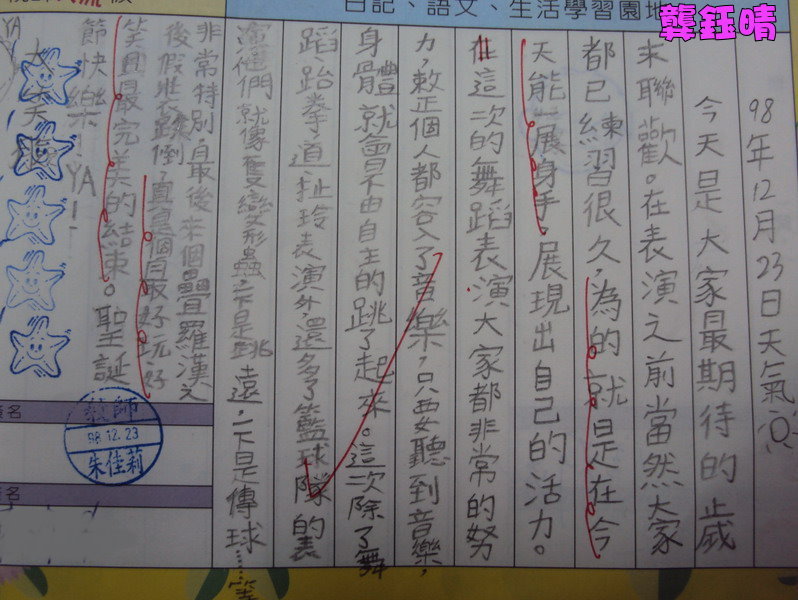 日記、語文、生活學習園地
龔鈺晴
98年12月23日天氣
今天是大家最期待的歲
末聯歡。在表演之前當然大家
都已練習很久,為的就是在今
天能一展身手,展現出自己的活力。
在這次的舞蹈表演大家都非常的努
力,敕正個人都容入了音樂,只要聽到音樂,
身體就會不由自主的跳了起來。這次除了舞
蹈、跆拳道、扯玲表演外,還多了籃球隊的表
演他們就像隻變形蟲,一下是跳遠,一下是傳球……等
非常特別,最後來個疊羅漢之
後假裝跌倒,真是個最好玩、好
笑且最完美的結束。聖誕
節快樂 YA!
YA
老師
98.12.23
朱佳莉
簽名
簽名